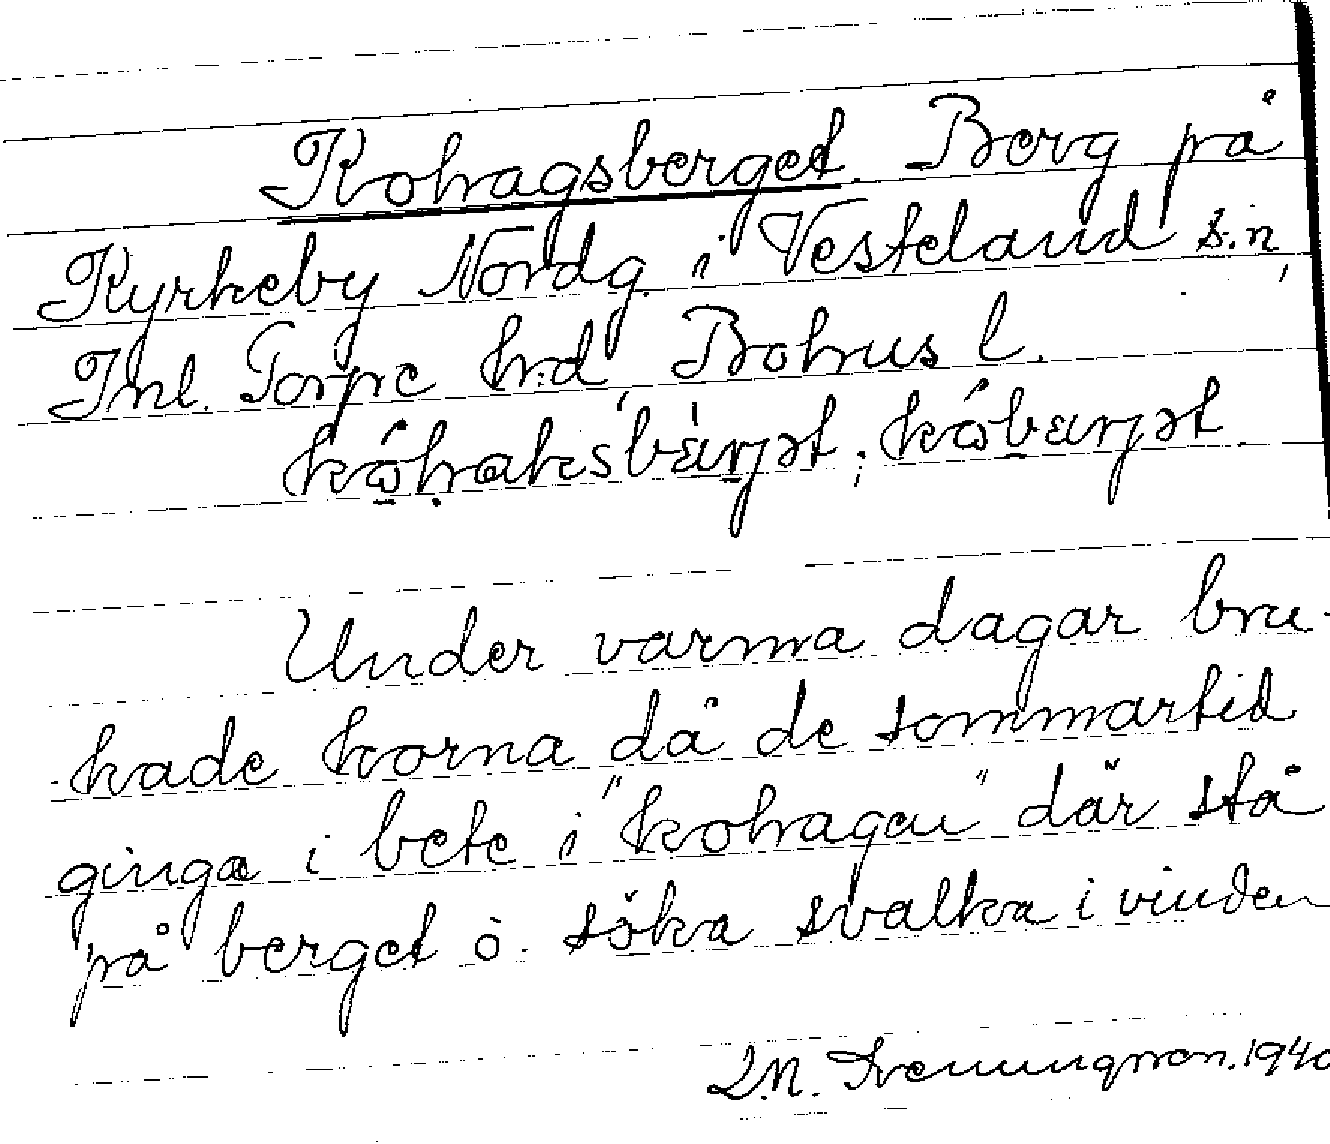 Kohagsberget. Berg på
Kyrkeby Nordg. i Vesteland s:n,
Inl. Torpe h:d, Bohus l.
Under varma dagar bru-
kade korna då de sommartid
ginga i bete i "kohagen" där stå
på berget o. söka svalka i vinden
1940